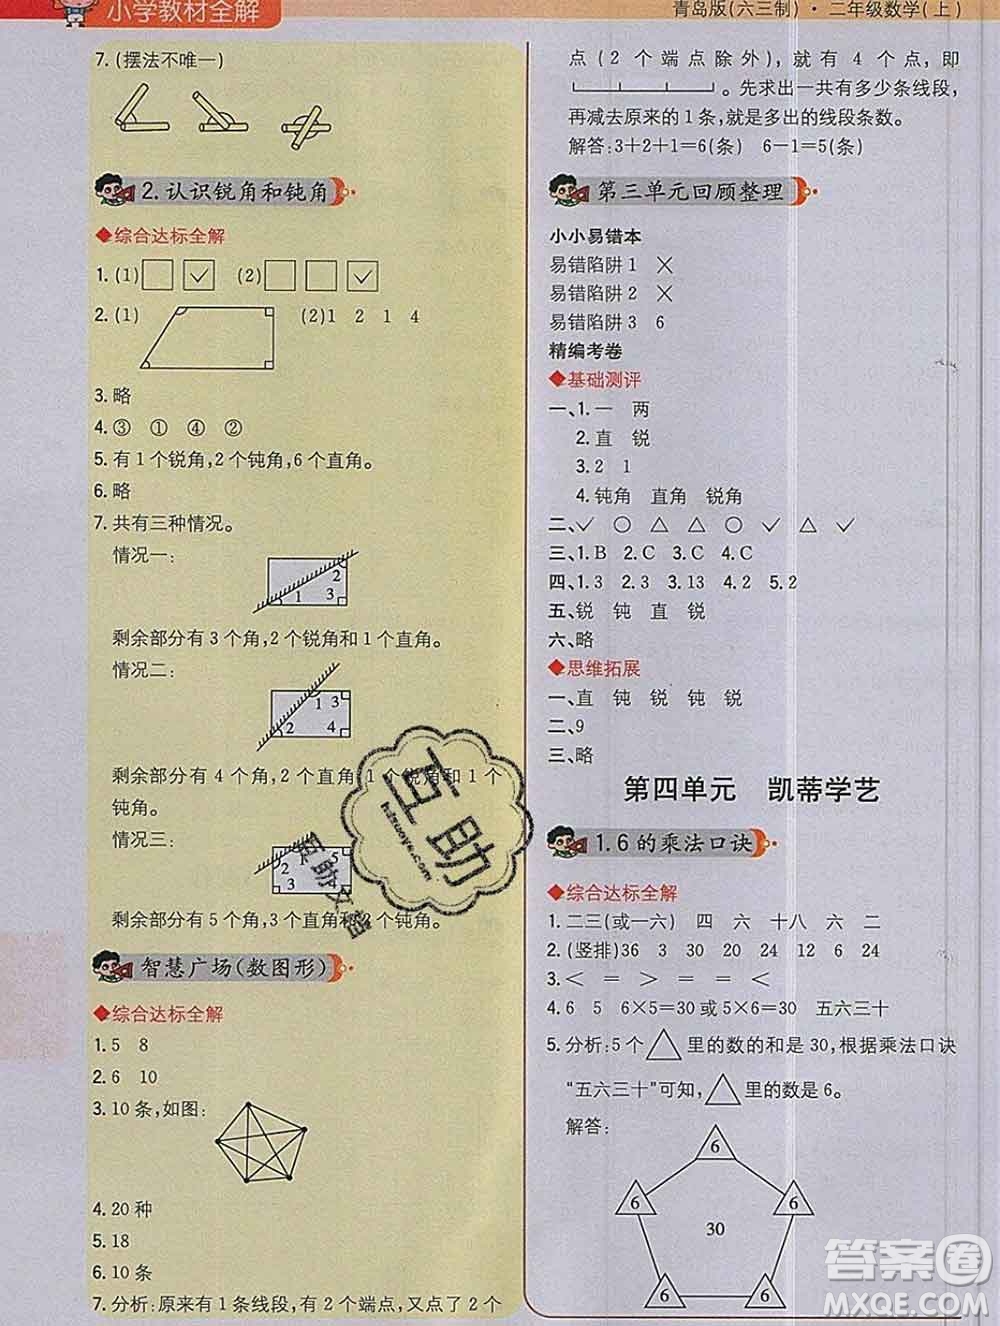 小学教材全解
青岛版(六三制)·二年级数学(上)
7.(摆法不唯一)
2.认识锐角和钝角
◆综合达标全解
1.(1)□ ☑ (2)□ □ ☑
2.(1) (2)1 2 1 4
3.略
4.③ ① ④ ②
5.有1个锐角,2个钝角,6个直角。
6.略
7.共有三种情况。
情况一:
2
1 3
剩余部分有3个角,2个锐角和1个直角。
情况二:
1 3
2 4
剩余部分有4个角,2个直角,1个锐角和1个
钝角。
情况三:
2 1 5
3 4
剩余部分有5个角,3个直角和2个钝角。
智慧广场(数图形)
◆综合达标全解
1.5 8
2.6 10
3.10条,如图:
4.20种
5.18
6.10条
7.分析:原来有1条线段,有2个端点,又点了2个
点(2个端点除外),就有4个点,即
。先求出一共有多少条线段,
再减去原来的1条,就是多出的线段条数。
解答:3+2+1=6(条) 6-1=5(条)
第三单元回顾整理
小小易错本
易错陷阱1 ×
易错陷阱2 ×
易错陷阱3 6
精编考卷
◆基础测评
一、1.一 两
2.直 锐
3.2 1
4.钝角 直角 锐角
二、✓ ○ △ △ ○ ✓ △ ✓
三、1.B 2.C 3.C 4.C
四、1.3 2.3 3.13 4.2 5.2
五、锐 钝 直 锐
六、略
◆思维拓展
一、直 钝 锐 钝 锐
二、9
三、略
第四单元 凯蒂学艺
1.6的乘法口诀
◆综合达标全解
1.二三(或一六) 四 六 十八 六 二
2.(竖排)36 3 30 20 24 12 6 24
3.< = > = > <
4.6 5 6×5=30或5×6=30 五六三十
5.分析:5个△里的数的和是30,根据乘法口诀
“五六三十”可知,△里的数是6。
解答:
6
6 6
30
6 6
互助
互助文智
答案圈
MXQE.COM